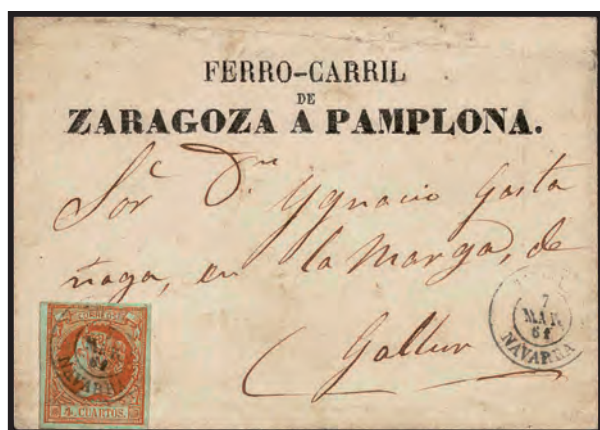 FERRO-CARRIL
DE
ZARAGOZA A PAMPLONA.
Sor Dn Ygnacio Gasta
ñaga, en la Marga, de
Gallur
7
MAR
61
NAVARRA
CORREOS
MAR
61
NAVARRA
4 CUARTOS.